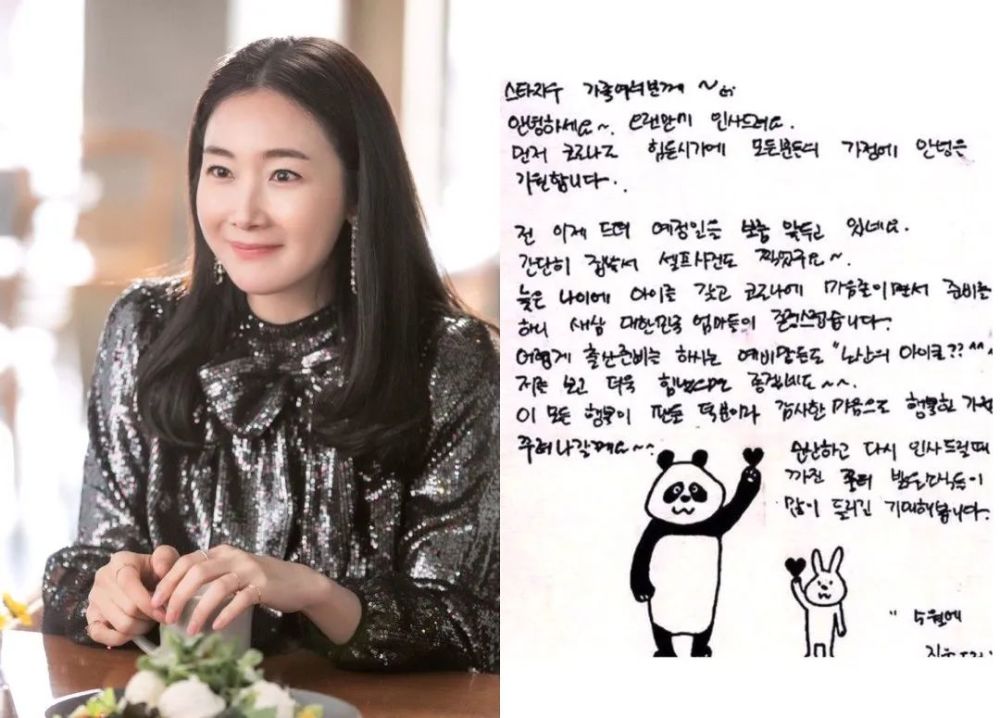 스타지우 가족여러분께 ~
안녕하세요~. 오랜만에 인사드려요.
먼저 코로나로 힘든시기에 모든분들의 가정에 안녕을
기원합니다..
전 이제 드뎌 예정인을 보름 앞두고 있네요.
간단히 집에서 셀프사진도 찍었구요~.
늦은 나이에 아이를 갖고 코로나에 마음졸이면서 준비를
하니 새삼 대한민국 엄마들이 존경스럽습니다.
어렵게 출산준비를 하시는 예비맘들도 "노산의 아이콘?? ^^
저를 보고 더욱 힘냈으면 좋겠네요~~.
이 모든 행복이 모두 덕분이라 감사한 마음으로 행복한 가정
꾸려나갈께요~~.
순산하고 다시 인사드릴때
까진 밝은소식들이
많이 들리길 기대해봅니다.
" 5월에